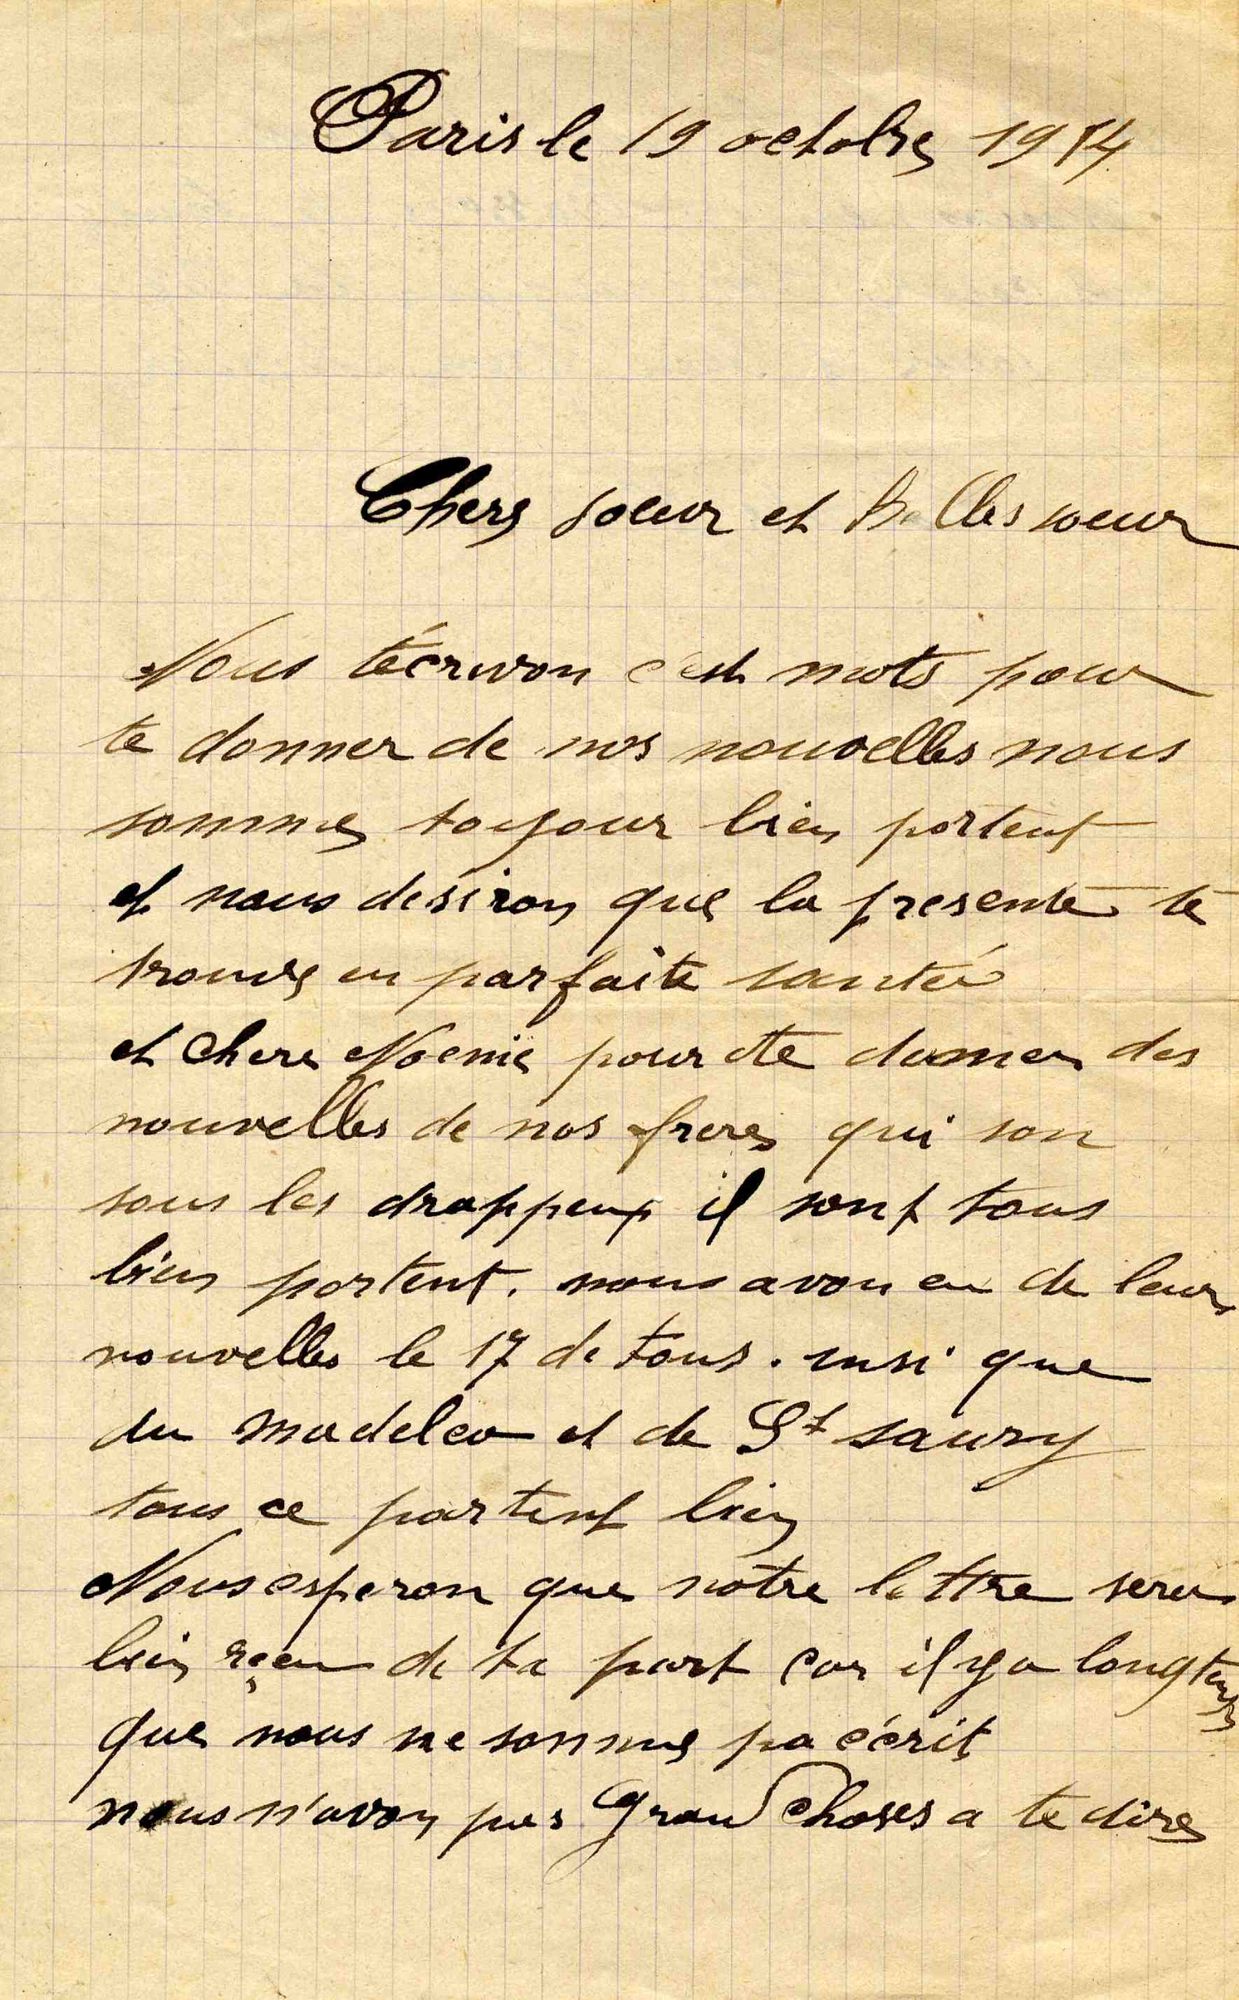 Paris le 19 octobre 1914
Chere soeur et Belles soeur
Nous técrivon c'est mots pour
te donner de nos nouvelles nous
somme toujour bien portent
et nous desiron que la presente te
trouve en parfaite santé
et chere Noemie pour te donner des
nouvelles de nos freres qui son
sous les drappeux il sont tous
bien portent. nous avon eu de leurs
nouvelles le 17 de tous. insi que
du et de St saury
tous ce portent bien
Nous esperon que notre lettre sera
bien reçu de ta part car il y a longtemps
que nous ne somme pa écrit
nous n'avon pas Grand choses a te dire